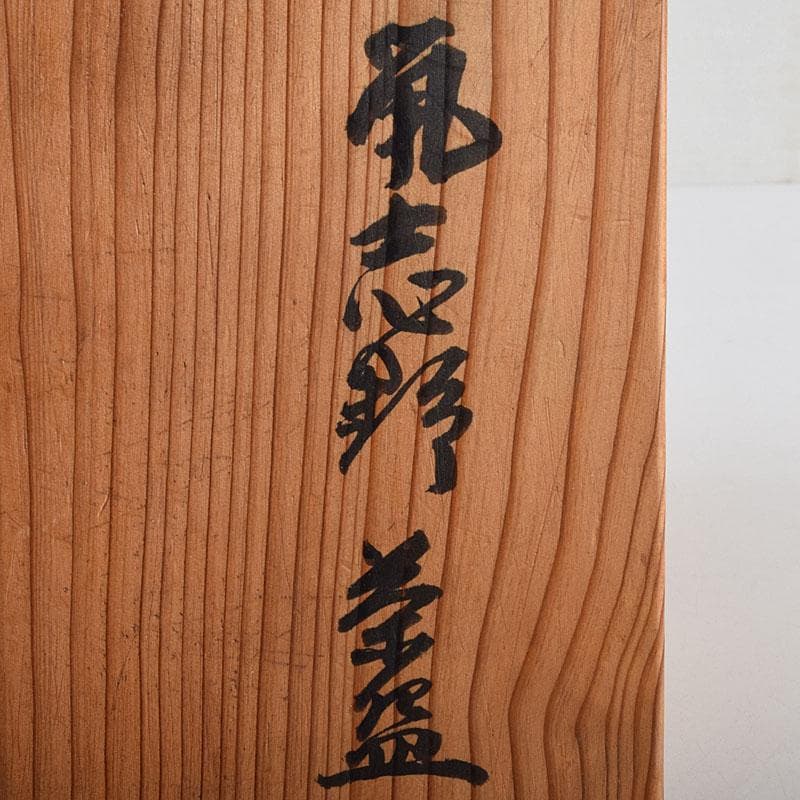 鼠志野
茶盌